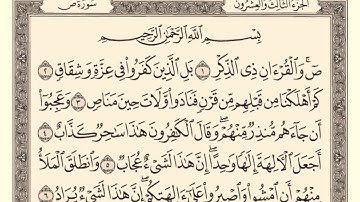 الجزء الثالث والعشرون
سورة ص
بِسْمِ اللَّهِ الرَّحْمَٰنِ الرَّحِيمِ
صٓ ۚ وَالْقُرْءَانِ ذِي الذِّكْرِ ١ بَلِ الَّذِينَ كَفَرُوا۟ فِي عِزَّةٍ وَشِقَاقٍ ٢
كَمْ أَهْلَكْنَا مِن قَبْلِهِم مِّن قَرْنٍ فَنَادَوا۟ وَّلَاتَ حِينَ مَنَاصٍ ٣ وَعَجِبُوٓا۟
أَن جَآءَهُم مُّنذِرٌ مِّنْهُمْ ۖ وَقَالَ الْكَٰفِرُونَ هَٰذَا سَٰحِرٌ كَذَّابٌ ٤
أَجَعَلَ الْءَالِهَةَ إِلَٰهًا وَٰحِدًا ۖ إِنَّ هَٰذَا لَشَيْءٌ عُجَابٌ ٥ وَانطَلَقَ الْمَلَأُ
مِنْهُمْ أَنِ امْشُوا۟ وَاصْبِرُوا۟ عَلَىٰٓ ءَالِهَتِكُمْ ۖ إِنَّ هَٰذَا لَشَيْءٌ يُرَادُ ٦